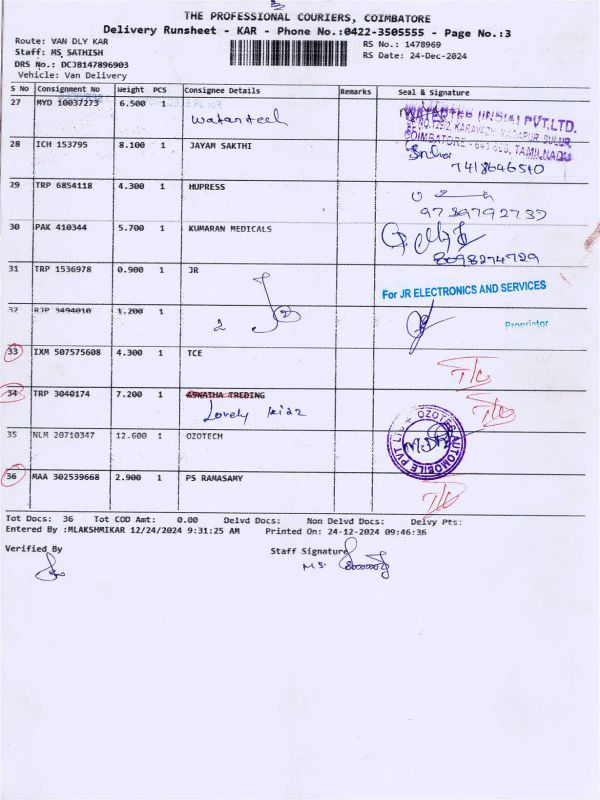 THE PROFESSIONAL COURIERS, COIMBATORE
Delivery Runsheet - KAR - Phone No.:0422-3505555 - Page No.:3
Route: VAN DLY KAR RS No.: 1478969
Staff: MS SATHISH RS Date: 24-Dec-2024
DRS No.: DCJB147896903
Vehicle: Van Delivery
S No Consignment No Weight PCS Consignee Details Remarks Seal & Signature
27 MYD 10037273 6.500 1 Watertech
WATERTEC (INDIA) PVT.LTD.
COIMBATORE - 641 668, TAMILNADU
28 ICH 153795 8.100 1 JAYAM SAKTHI
7418646540
29 TRP 6854118 4.300 1 HUPRESS
9739792737
30 PAK 410344 5.700 1 KUMARAN MEDICALS
8098274729
31 TRP 1536978 0.900 1 JR
For JR ELECTRONICS AND SERVICES
32 RJP 3494010 1.200 1 2
Proprietor
33 IXM 507575608 4.300 1 TCE
34 TRP 3040174 7.200 1 ASWATHA TREDING
Lovely kidz
35 NLM 20710347 12.600 1 OZOTECH
OZOTEC AUTOMOBILE PVT LTD
36 MAA 302539668 2.900 1 PS RAMASAMY
Tot Docs: 36 Tot COD Amt: 0.00 Delvd Docs: Non Delvd Docs: Delvy Pts:
Entered By :MLAKSHMIKAR 12/24/2024 9:31:25 AM Printed On: 24-12-2024 09:46:36
Verified By Staff Signature
M.S.